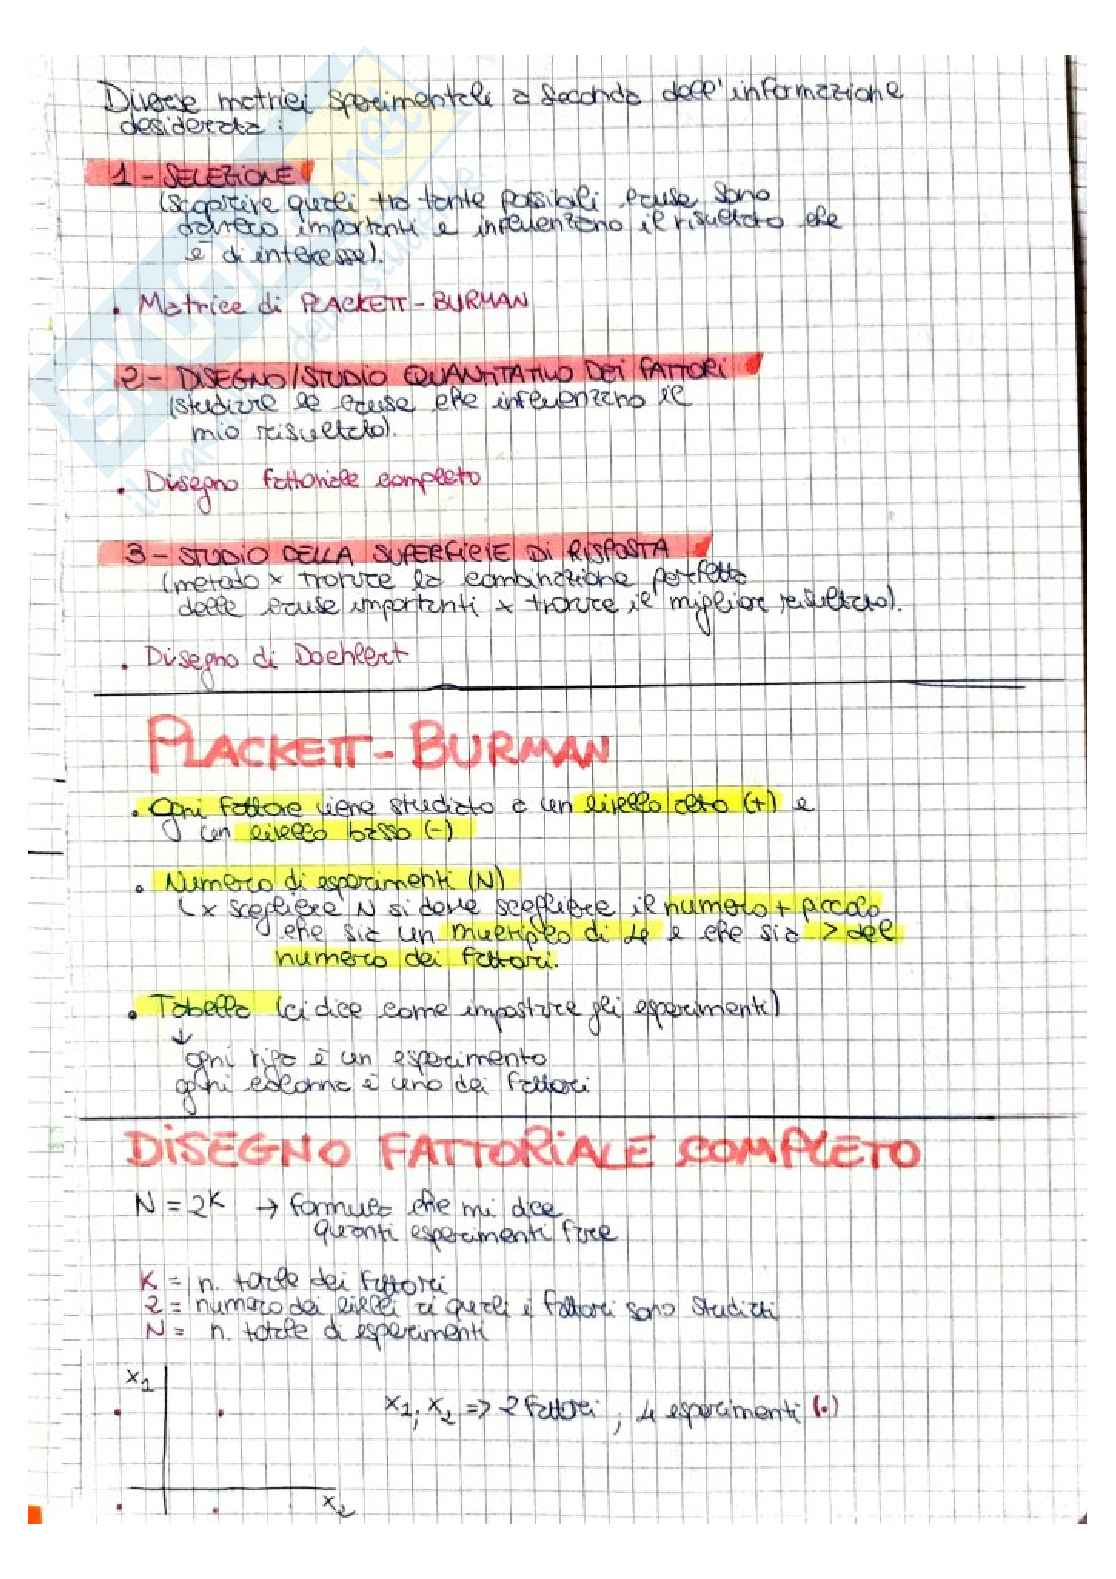 Diverse matrici sperimentali a seconda dell'informazione
desiderata:
1 - SELEZIONE
(scoprire quali tra tante possibili cause sono
davvero importanti e influenzano il risultato che
è di interesse).
• Matrice di PLACKETT - BURMAN
2 - DISEGNO/STUDIO QUANTITATIVO DEI FATTORI
(studiare le cause che influenzano il
mio risultato).
• Disegno fattoriale completo
3 - STUDIO DELLA SUPERFICIE DI RISPOSTA
(metodo x trovare la combinazione perfetta
delle cause importanti x trovare il miglior risultato).
• Disegno di Doehlert
PLACKETT - BURMAN
• Ogni fattore viene studiato a un livello alto (+) e
un livello basso (-)
• Numero di esperimenti (N)
x scegliere N si deve scegliere il numero + piccolo
che sia un multiplo di 4 e che sia > del
numero dei fattori.
• Tabella (ci dice come impostare gli esperimenti)
↓
ogni riga è un esperimento
ogni colonna è uno dei fattori
DISEGNO FATTORIALE COMPLETO
N = 2ᴷ → formula che mi dice
quanti esperimenti fare
K = n. totale dei fattori
2 = numero dei livelli ai quali i fattori sono studiati
N = n. totale di esperimenti
x₁
x₁, x₂ => 2 fattori, 4 esperimenti (•)
x₂
SKUOLA.net